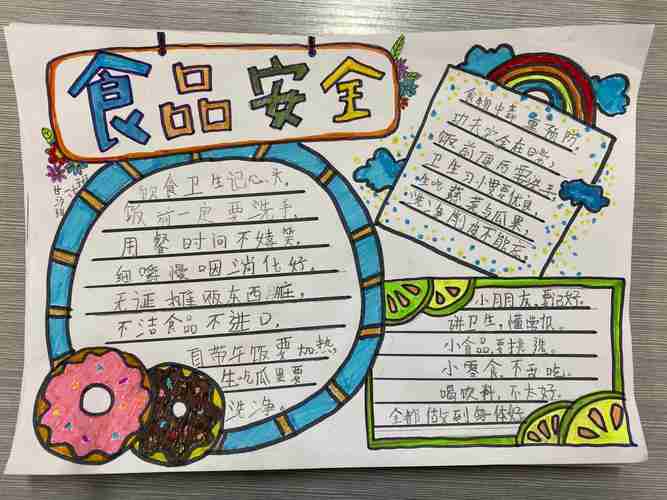 食品安全
饮食卫生记心头,
饭前一定要洗手,
用餐时间不嬉笑,
细嚼慢咽消化好,
无证摊贩东西脏,
不洁食品不进口,
自带午饭要加热
生吃瓜果要
洗净。
食物中毒重预防,
功夫全在日常,
饭前便后要洗手,
卫生习惯要优良,
生吃蔬菜与瓜果,
洗净削皮不能忘,
小朋友,要记好,
讲卫生,懂营报。
小食品,要挑选。
小零食,不乱吃。
喝饮料,不太好。
全部做到身体好